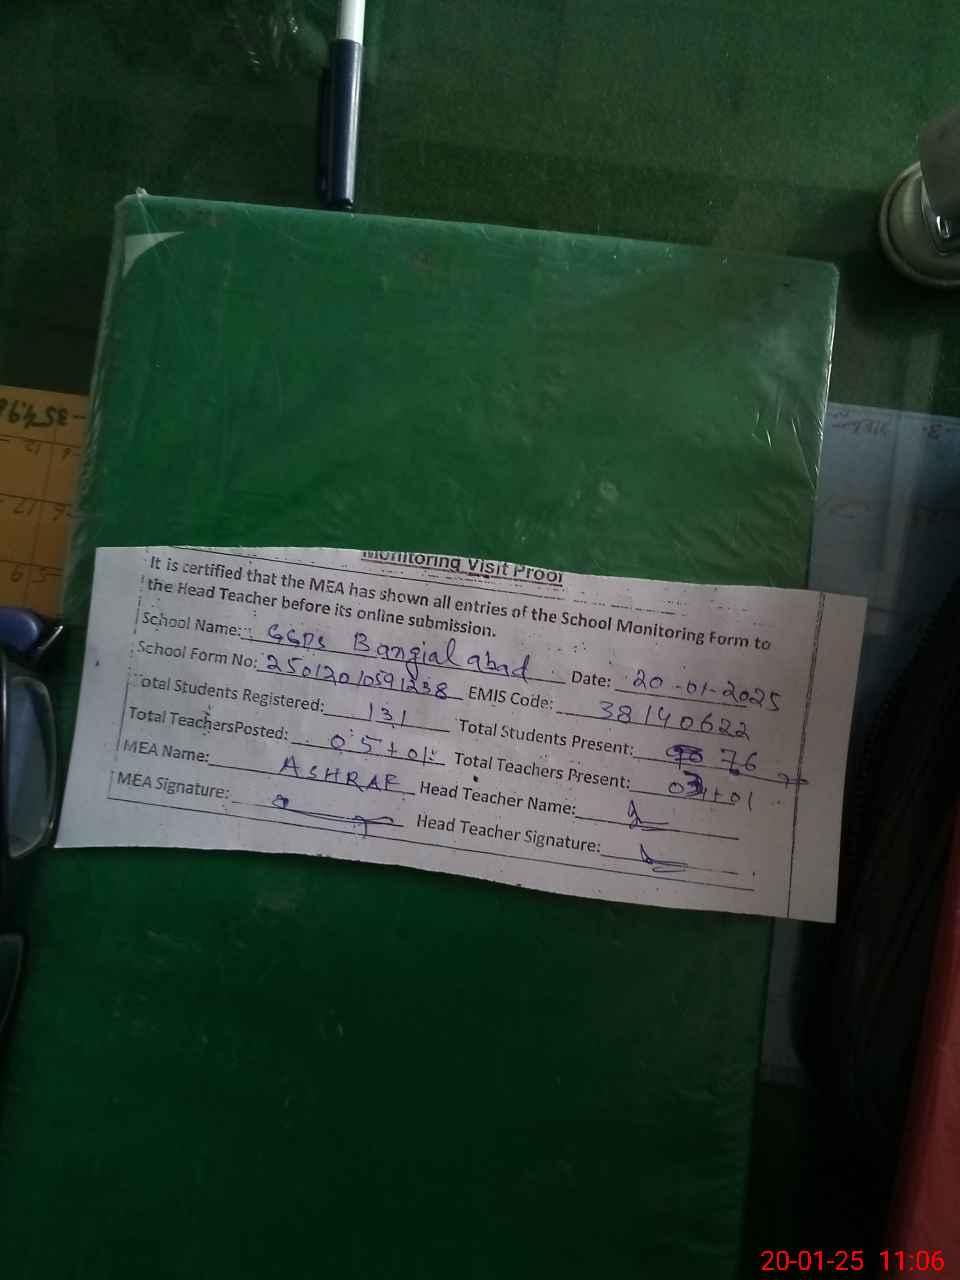 Monitoring Visit Proof
It is certified that the MEA has shown all entries of the School Monitoring Form to
the Head Teacher before its online submission.
School Name: GGPS Bangial abad Date: 20-01-2025
School Form No: 25012010591238 EMIS Code: 38140622
Total Students Registered: 131 Total Students Present: 76
Total TeachersPosted: 05+01 Total Teachers Present: +01
MEA Name: ASHRAF Head Teacher Name:
MEA Signature: Head Teacher Signature:
20-01-25 11:06